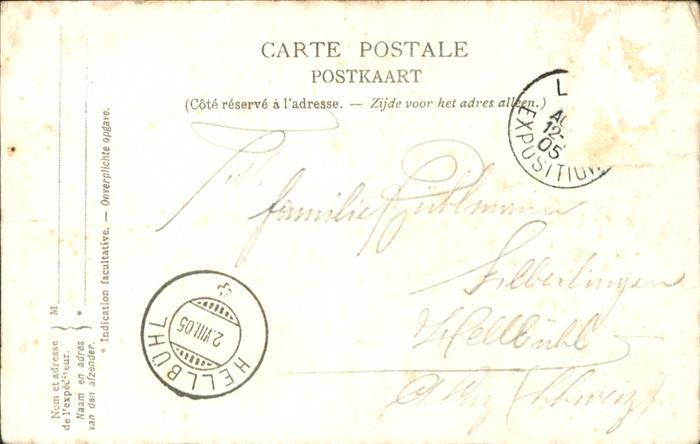 CARTE POSTALE
POSTKAART
(Côté réservé à l'adresse. — Zijde voor het adres alleen.)
L
AO
12-
05
EXPOSITION
familie Bühlmann
Silberlingen
Hellbühl
(Schweiz)
HELLBÜHL
2.VIII.05
M
*
Nom et adresse
de l'expéditeur.
Naam en adres
van den afzender.
* Indication facultative. — Onverplichte opgave.